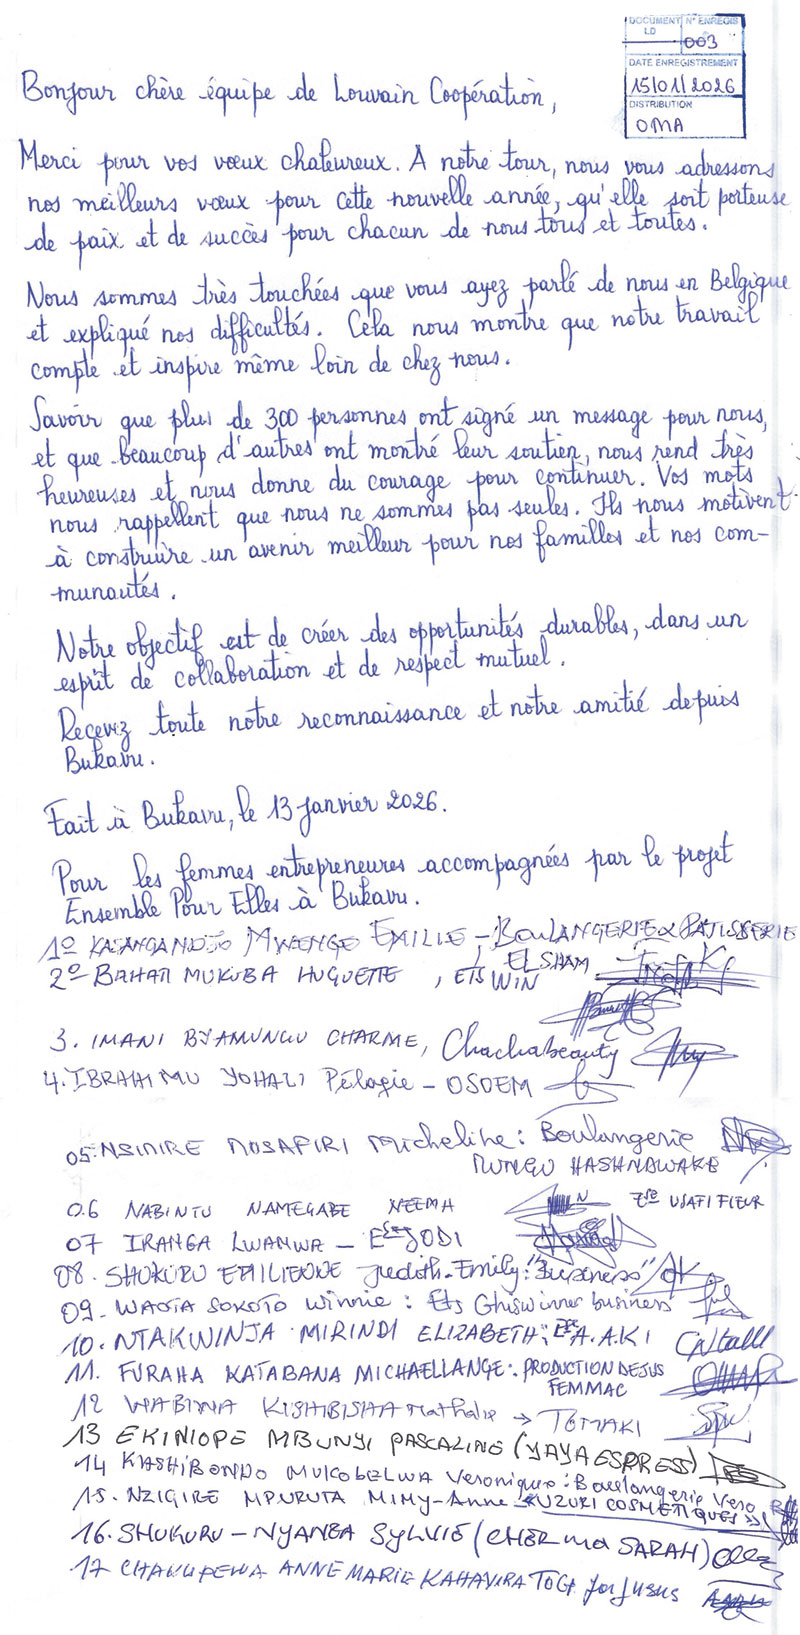 DOCUMENT N° ENREGIS
LD 003
DATE ENREGISTREMENT
15/01/2026
DISTRIBUTION
OMA
Bonjour chère équipe de Louvain Coopération,
Merci pour vos vœux chaleureux. A notre tour, nous vous adressons
nos meilleurs vœux pour cette nouvelle année, qu'elle soit porteuse
de paix et de succès pour chacun de nous tous et toutes.
Nous sommes très touchées que vous ayez parlé de nous en Belgique
et expliqué nos difficultés. Cela nous montre que notre travail
compte et inspire même loin de chez nous.
Savoir que plus de 300 personnes ont signé un message pour nous,
et que beaucoup d'autres ont montré leur soutien, nous rend très
heureuses et nous donne du courage pour continuer. Vos mots
nous rappellent que nous ne sommes pas seules. Ils nous motivent
à construire un avenir meilleur pour nos familles et nos com-
munautés.
Notre objectif est de créer des opportunités durables, dans un
esprit de collaboration et de respect mutuel.
Recevez toute notre reconnaissance et notre amitié depuis
Bukavu.
Fait à Bukavu, le 13 janvier 2026.
Pour les femmes entrepreneures accompagnées par le projet
Ensemble Pour Elles à Bukavu.
1° MWENGE EMILIE - BOULANGERIE & PATISSERIE
EL SHAM
2° BAHATI MUKUBA HUGUETTE, ETS WIN
3. IMANI BYAMUNGU CHARME, Chachabeauty
4. IBRAHIMU YOHALI Pélagie - OSOEM
05. NSIMIRE Micheline : Boulangerie
MUNGU HASHNAWAKE
06 NABINTU NAMEGABE NEEMA USAFI FLEUR
07 IRANGA LWANWA - JODI
08. SHUKURU EMILIENNE Judith-Emily : "Business"
09. WAOTA SOKOTO Winnie : Ets Ghiswinner business
10. NTAKWINJA MIRINDI ELIZABETH : A.AKI
11. FURAHA KATABANA MICHAELLANGE : PRODUCTION DE JUS
FEMMAC
12 WABIWA Nathalie → TOMAKI
13 EKINIOPE MBUNYI PASCALINE (YAYA ESPRESS)
14 KASHIBONDO MUKOBELWA Veronique : Boulangerie Vero
15. NZIGIRE MPURUTA MIMY-Anne « UZURI COSMETIQUES »
16. SHUKURU - NYANZA SYLVIE (CHER ma SARAH)
17 ANNE MARIE KAHAVIRA TOGT for Jusus